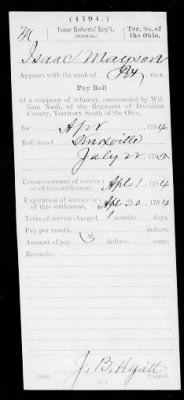 (1794.)
M Isaac Roberts' Reg't, Ter. So. of
(Militia.) the Ohio.
Isaac Mayson
Appears with the rank of Pvt on a
Pay Roll
of a company of infantry, commanded by Wil-
liam Nash, of the Regiment of Davidson
County, Territory South of the Ohio,
for Apr, 1794
Roll dated Knoxville
July 22, 179
Commencement of service
or of this settlement, Apl 1, 1794
Expiration of service or
of this settlement, Apl 30, 1794
Term of service charged, 1 months, days.
Pay per month, dollars, cents.
Amount of pay, 3 dollars, cents.
Remarks:
J. B. Hyatt
Copyist.